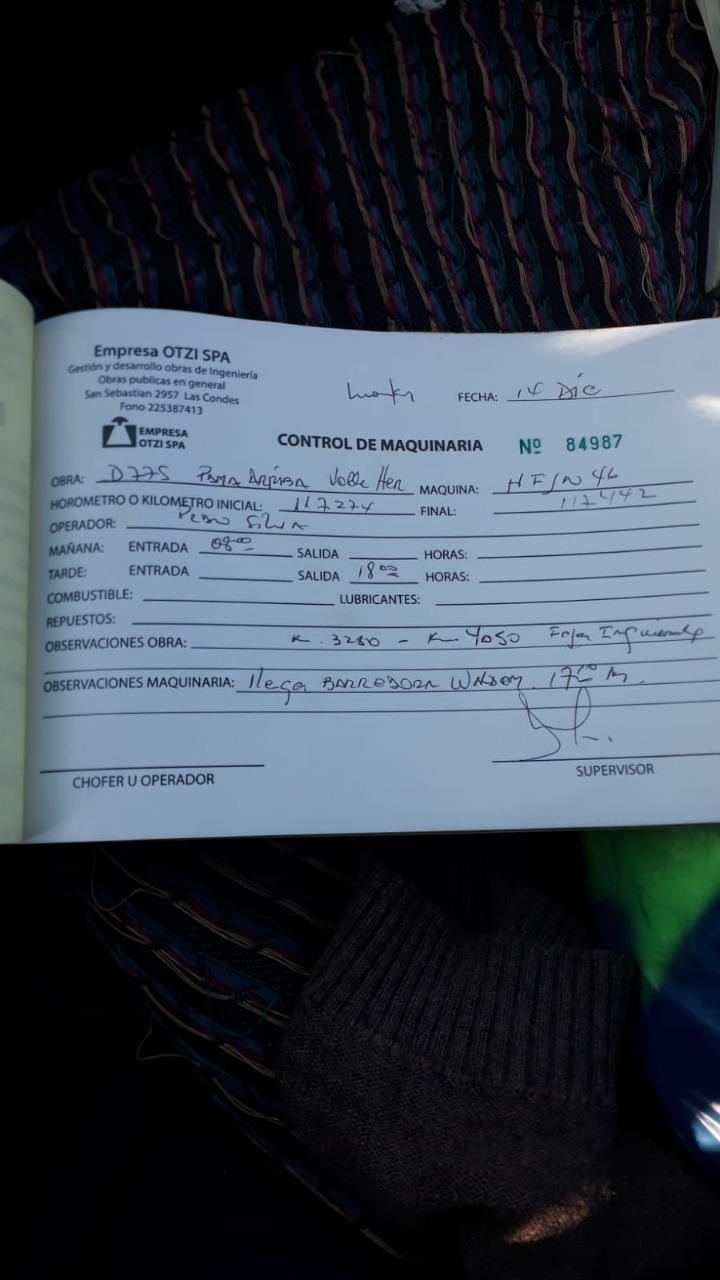 Empresa OTZI SPA
Gestión y desarrollo obras de Ingeniería
Obras publicas en general
San Sebastian 2957 Las Condes
Fono 225387413
FECHA: 14 Dic
EMPRESA
OTZI SPA
CONTROL DE MAQUINARIA Nº 84987
OBRA: D775 MAQUINA:
HOROMETRO O KILOMETRO INICIAL: 117274 FINAL: 117442
OPERADOR: Pedro Silva
MAÑANA: ENTRADA 08:00 SALIDA HORAS:
TARDE: ENTRADA SALIDA 18:00 HORAS:
COMBUSTIBLE: LUBRICANTES:
REPUESTOS:
OBSERVACIONES OBRA: K. 3250 - K. 4050 Faja
OBSERVACIONES MAQUINARIA: llega BARREDORA
CHOFER U OPERADOR SUPERVISOR